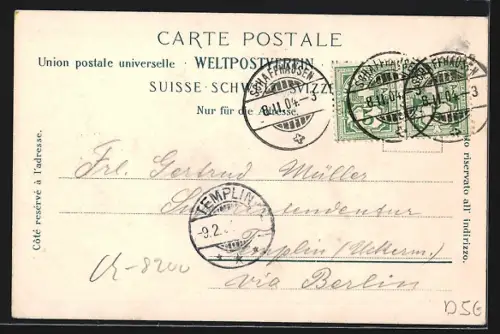 CARTE POSTALE
Union postale universelle · WELTPOSTVEREIN
SUISSE · SCHWEIZ · SVIZZERA
Nur für die Adresse.
SCHAFFHAUSEN 3
8.II.04.
SCHAFFHAUSEN 3
8.II.04.
SCHAFFHAUSEN 3
8.II.04.
5
Côté réservé à l'adresse.
Lato riservato all' indirizzo.
Frl. Gertrud Müller
Superintendentur
Templin (Uckerm.)
via Berlin
TEMPLIN
-9.2.
Ch-8200
D56